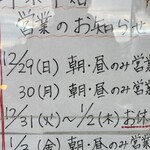 営業のお知らせ
12/29(日) 朝・昼のみ営業
30(月) 朝・昼のみ営業
12/31(火)〜1/2(木)お休
1/3(金) 朝・昼のみ営